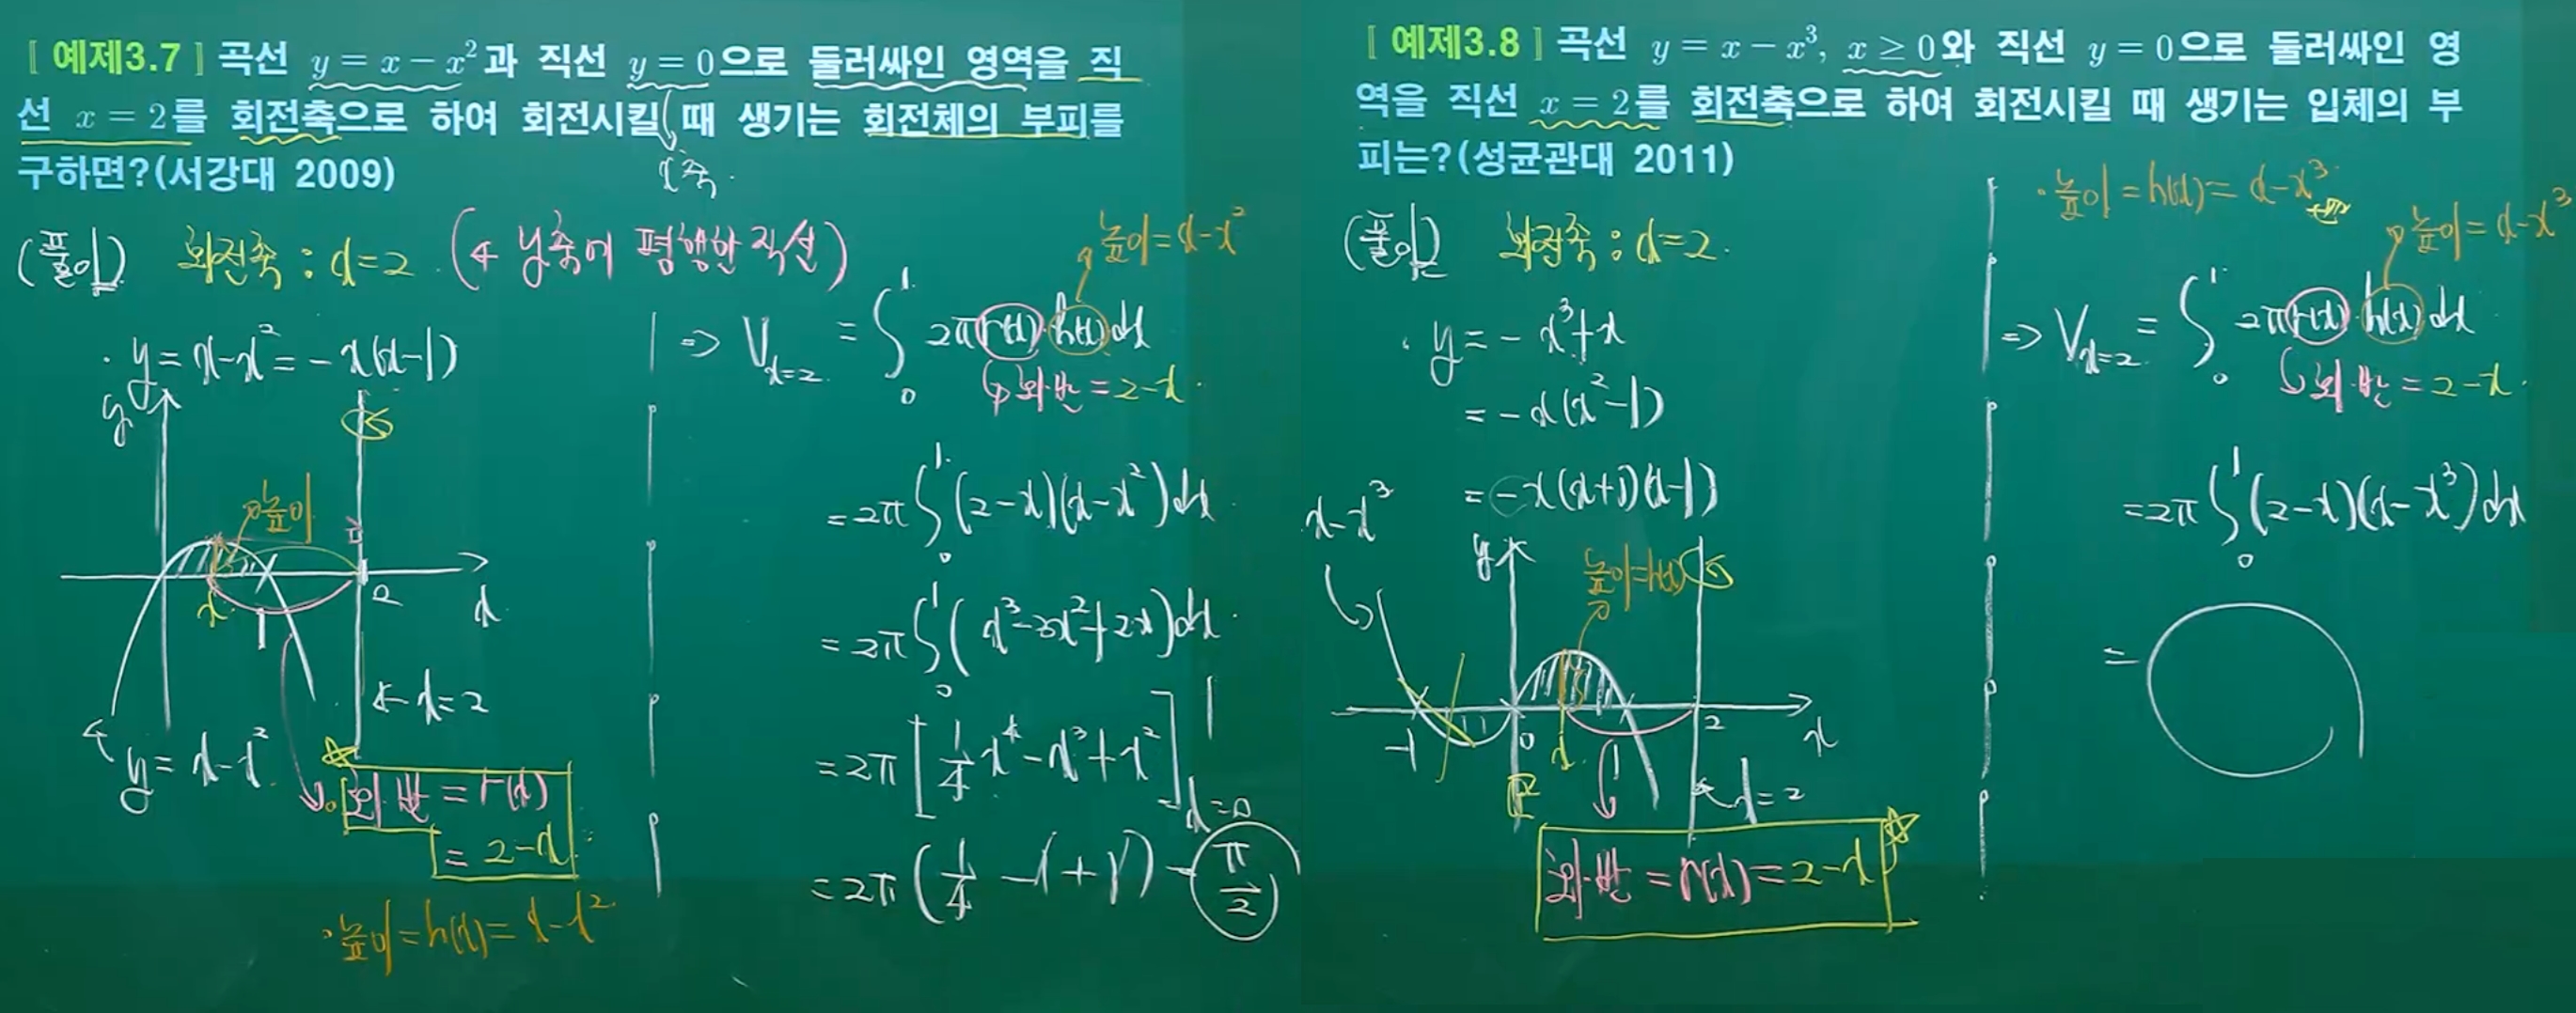 [ 예제3.7 ] 곡선 y = x - x²과 직선 y = 0으로 둘러싸인 영역을 직
선 x = 2를 회전축으로 하여 회전시킬 때 생기는 회전체의 부피를
구하면?(서강대 2009)
x축.
(풀이) 회전축 : x=2. (← y축에 평행한 직선)
· y = x-x² = -x(x-1)
y
높이
x
1
2
x
← x=2
y = x-x²
회·반 = r(x)
= 2-x
· 높이 = h(x) = x-x²
높이 = x-x²
⇒ V_{x=2} = ∫₀¹ 2π r(x) h(x) dx
회·반 = 2-x.
= 2π ∫₀¹ (2-x)(x-x²) dx
= 2π ∫₀¹ (x³-3x²+2x) dx
= 2π [ 1/4 x⁴ - x³ + x² ]¹_{x=0}
= 2π ( 1/4 - 1 + 1 ) = π/2
[ 예제3.8 ] 곡선 y = x - x³, x ≥ 0와 직선 y = 0으로 둘러싸인 영
역을 직선 x = 2를 회전축으로 하여 회전시킬 때 생기는 입체의 부
피는?(성균관대 2011)
(풀이) 회전축 : x=2.
· y = -x³+x
= -x(x²-1)
= -x(x+1)(x-1)
x-x³
y
높이=h(x)
-1
0
x
1
2
x
x=2
회·반 = r(x) = 2-x
· 높이 = h(x) = x-x³
높이 = x-x³
⇒ V_{x=2} = ∫₀¹ 2π r(x) h(x) dx
회·반 = 2-x.
= 2π ∫₀¹ (2-x)(x-x³) dx
=